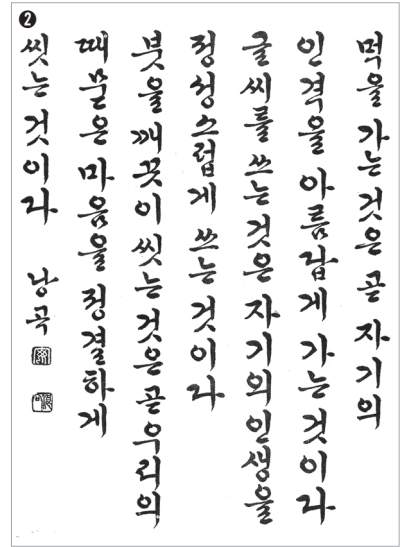 ❷
먹을 가는 것은 곧 자기의
인격을 아름답게 가는 것이라
글씨를 쓰는 것은 자기의 인생을
정성스럽게 쓰는 것이라
붓을 깨끗이 씻는 것은 곧 우리의
때묻은 마음을 정결하게
씻는 것이라 낭곡